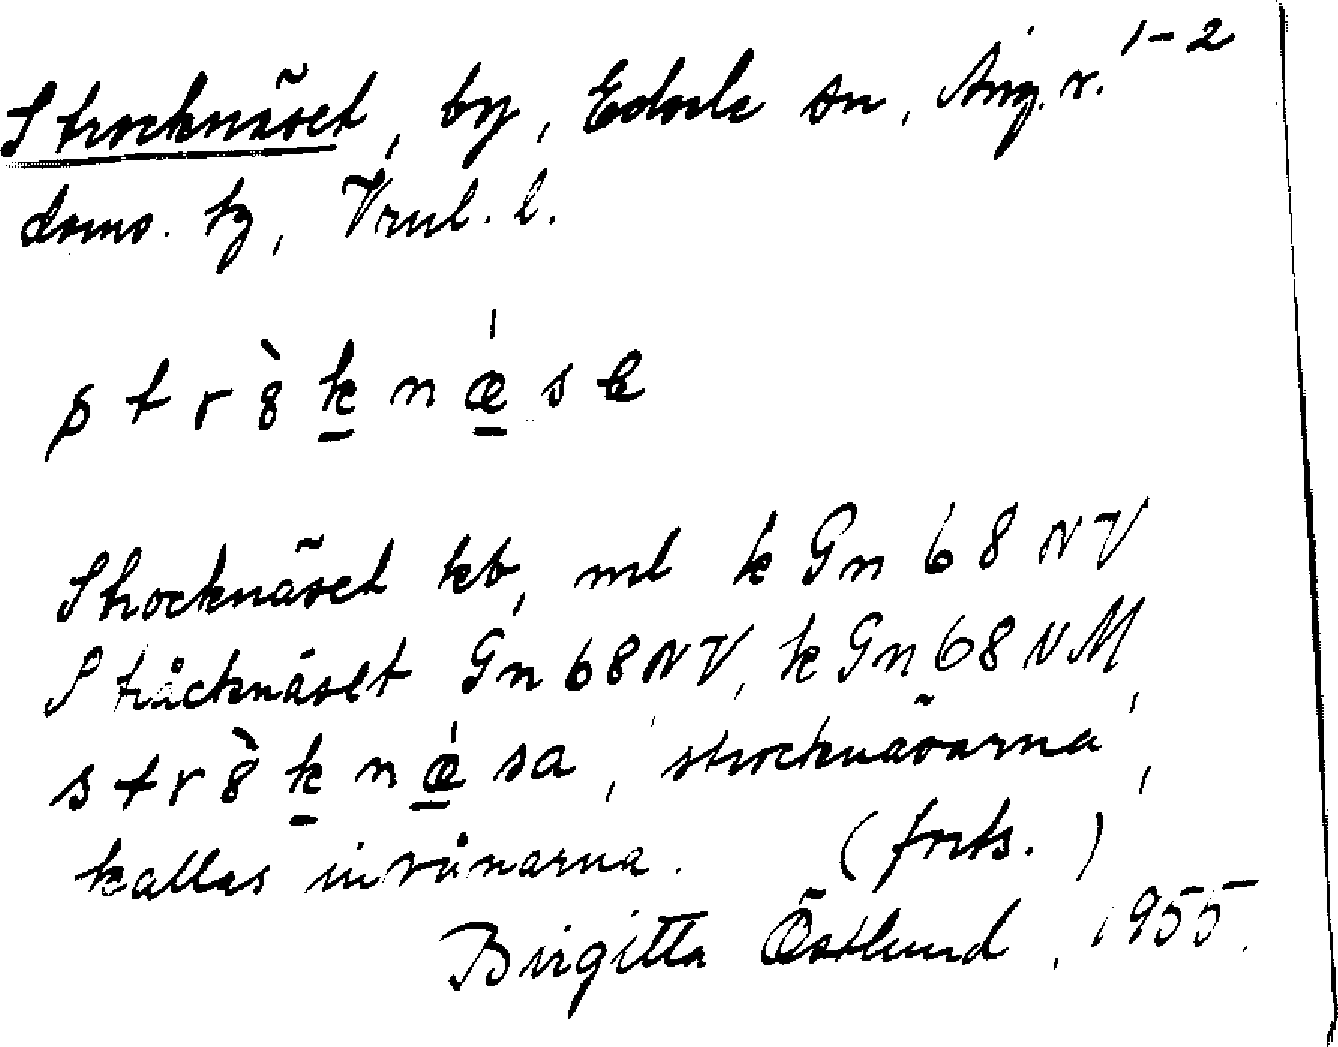 Strocknäset, by, Edsele sn, Ång. r. 1-2
doms. tg, Vnl. l.
s t r ò̤ k n ǽ s e
Strocknäset kb, ml k Gn 68 NV
Stråcknäset Gn 68 NV, k Gn 68 VM,
s t r ò̤ k n ǽ s a, 'strocknäsarna',
kallas invånarna. (forts.)
Birgitta Östlund, 1955.